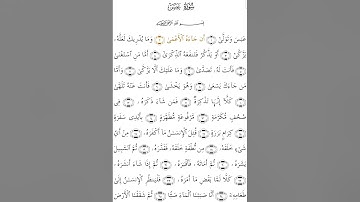 سُورَةُ عَبَسَ
بِسْمِ ٱللَّهِ ٱلرَّحْمَٰنِ ٱلرَّحِيمِ
عَبَسَ وَتَوَلَّىٰٓ ۝ أَن جَآءَهُ ٱلْأَعْمَىٰ ۝ وَمَا يُدْرِيكَ لَعَلَّهُۥ
يَزَّكَّىٰٓ ۝ أَوْ يَذَّكَّرُ فَتَنفَعَهُ ٱلذِّكْرَىٰٓ ۝ أَمَّا مَنِ ٱسْتَغْنَىٰ
۝ فَأَنتَ لَهُۥ تَصَدَّىٰ ۝ وَمَا عَلَيْكَ أَلَّا يَزَّكَّىٰ ۝ وَأَمَّا
مَن جَآءَكَ يَسْعَىٰ ۝ وَهُوَ يَخْشَىٰ ۝ فَأَنتَ عَنْهُ تَلَهَّىٰ
۝ كَلَّآ إِنَّهَا تَذْكِرَةٌ ۝ فَمَن شَآءَ ذَكَرَهُۥ ۝ فِى
صُحُفٍ مُّكَرَّمَةٍ ۝ مَّرْفُوعَةٍ مُّطَهَّرَةٍۭ ۝ بِأَيْدِى سَفَرَةٍ
۝ كِرَامٍۭ بَرَرَةٍ ۝ قُتِلَ ٱلْإِنسَٰنُ مَآ أَكْفَرَهُۥ ۝ مِنْ أَىِّ
شَىْءٍ خَلَقَهُۥ ۝ مِن نُّطْفَةٍ خَلَقَهُۥ فَقَدَّرَهُۥ ۝ ثُمَّ ٱلسَّبِيلَ
يَسَّرَهُۥ ۝ ثُمَّ أَمَاتَهُۥ فَأَقْبَرَهُۥ ۝ ثُمَّ إِذَا شَآءَ أَنشَرَهُۥ
۝ كَلَّا لَمَّا يَقْضِ مَآ أَمَرَهُۥ ۝ فَلْيَنظُرِ ٱلْإِنسَٰنُ إِلَىٰ
طَعَامِهِۦٓ ۝ أَنَّا صَبَبْنَا ٱلْمَآءَ صَبًّا ۝ ثُمَّ شَقَقْنَا ٱلْأَرْضَ